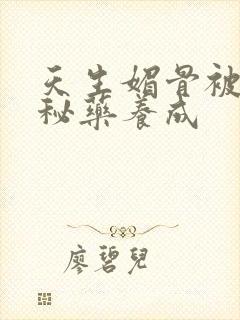 天生媚骨被
秘药养成
廖碧兒